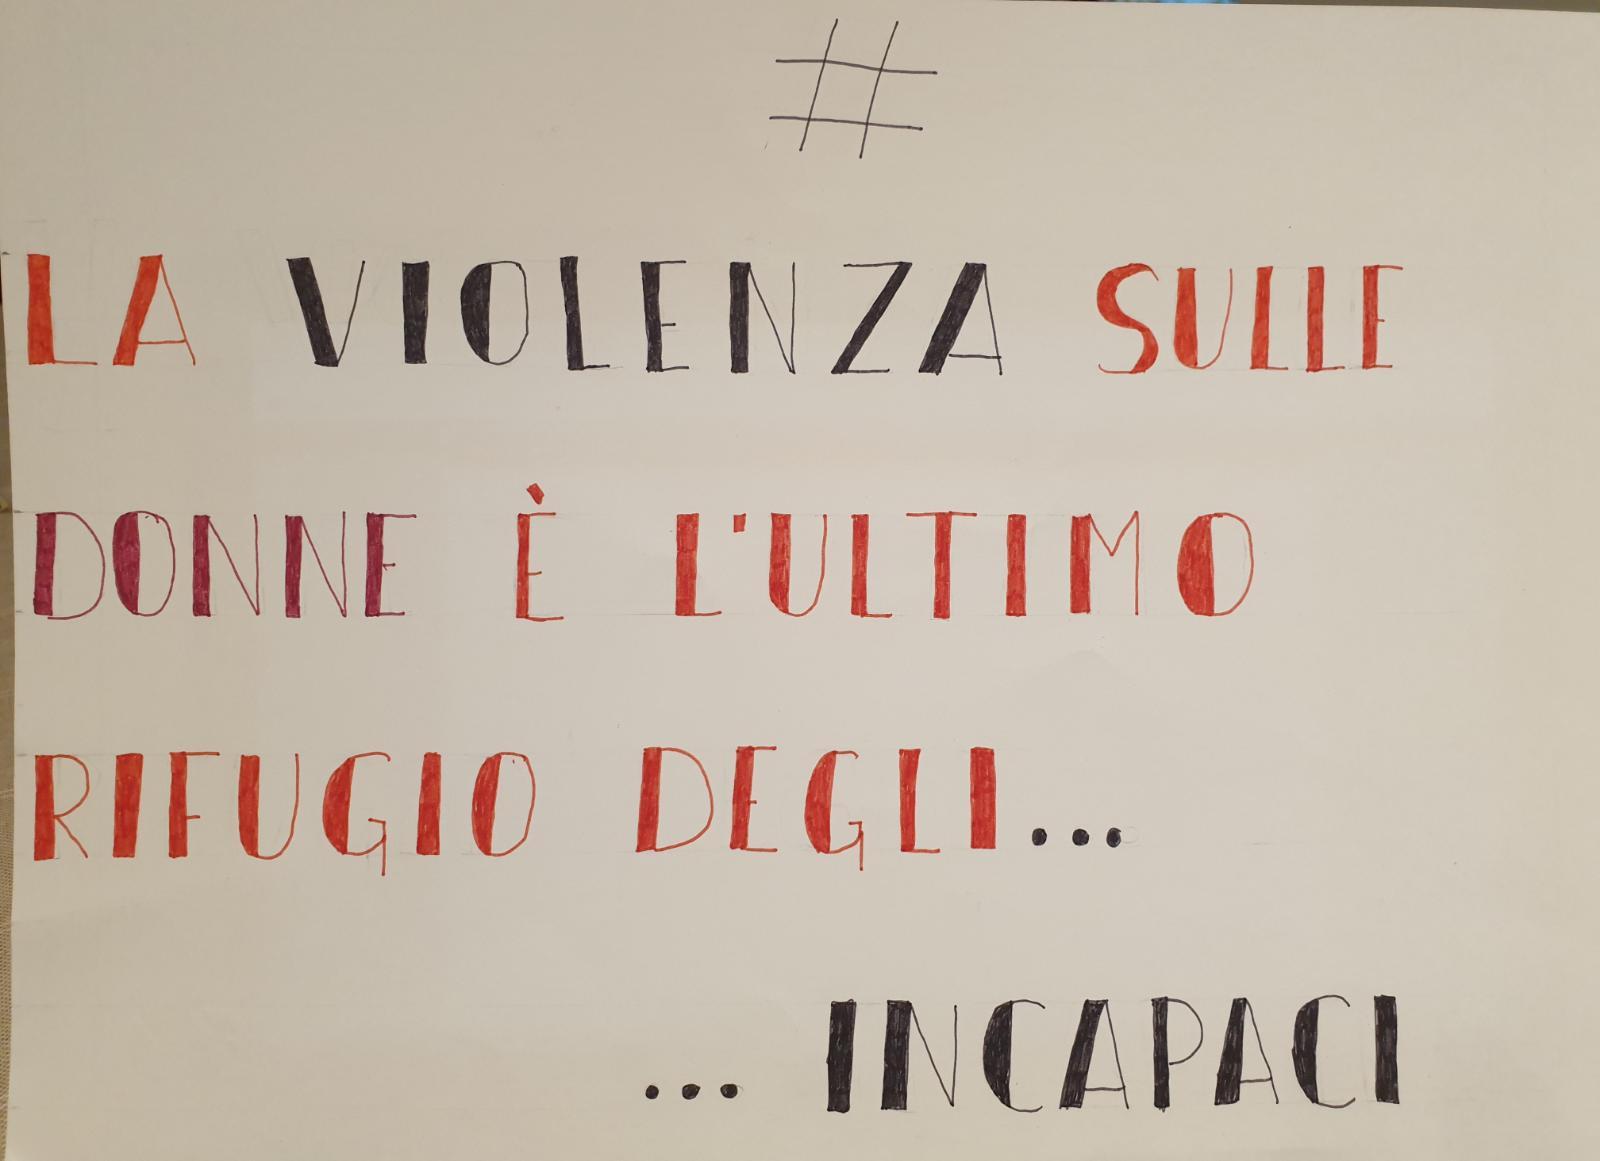 #
LA VIOLENZA SULLE
DONNE È L'ULTIMO
RIFUGIO DEGLI...
... INCAPACI